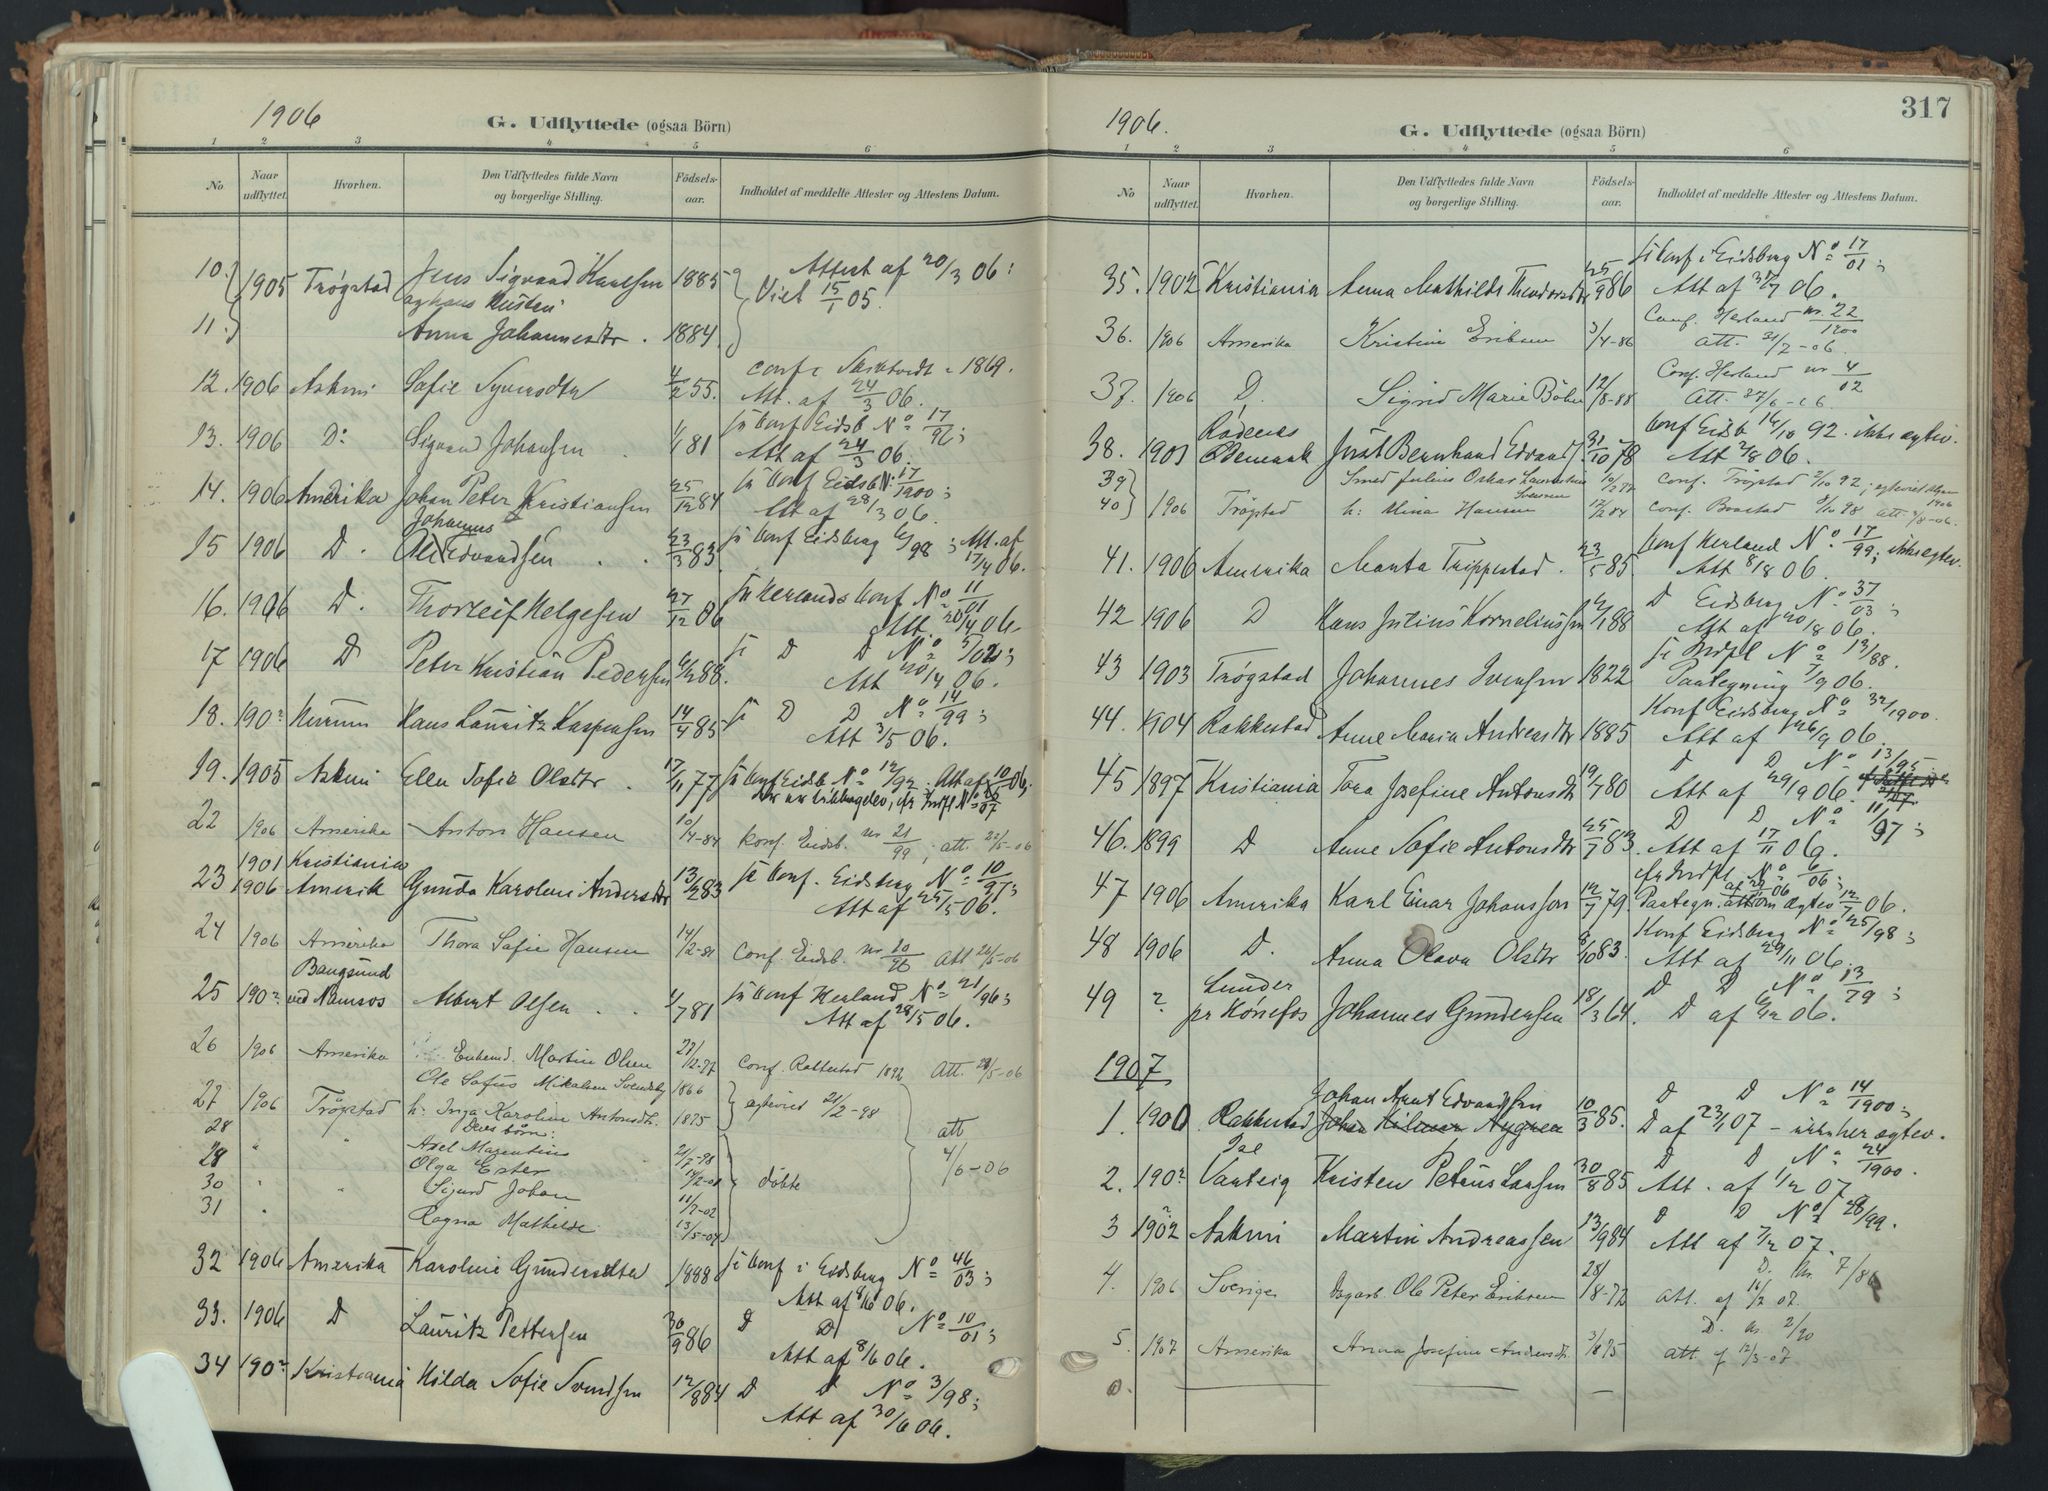 1906
G. Udflyttede (ogsaa Börn)
1 2 3 4 5 6
No. Naar udflyttet. Hvorhen. Den Udflyttedes fulde Navn og borgerlige Stilling. Födsels-aar. Indholdet af meddelte Attester og Attestens Datum.
10. 1905 Trøgstad Jens Sigvard Karlsen 1885 Attest af 20/3 06:
og hans Hustru Viet 15/1 05.
11. Anna Johannesdtr. 1884
12. 1906 Askim Sofie Syversdtr 4/2 55. conf i 1869.
Att. af 24/3 06.
13. 1906 Do Sigvard Johansen 81 Conf Eidsb No 17/96;
Att af 24/3 06.
14. 1906 Amerika Johan Peter Kristiansen 25/12 84 Conf Eidsb N: 17/1900;
Att af 28/3 06.
Johannes
15 1906 D. Ole Edvardsen 23/3 83. Conf Eidsberg /98; Att. af
17/4 06.
16. 1906 D. Thorleif Helgesen 27/12 86 Herlands Conf No 11/01
Att. 20/4 06.
17 1906 D Peter Kristian Pedersen 88. D D No /02;
Att 20/4 06.
18. 190? Hans Lauritz Kaspersen 14/4 85 D D No 14/99;
Att 3/5 06.
19. 1905 Askim Ella Sofie Olsdtr. 17/11 77 Conf Eidsb No 12/92. Att af 10/5 06.
22 1906 Amerika Anton Hansen 10/4-84 Konf. Eidsb. nr 21/99; att. 22/5-06
1901 Kristiania
23 1906 Amerik Gunda Karoline Andersdtr 13/2 83 Conf. Eidsberg No 10/97;
Att af 25/5 06.
24 1906 Amerika Thora Sofie Hansen 14/2-81 Conf. Eidsb. nr 10/96 Att 26/5-06
Bangsund
25 190? ved Namsos Albert Olsen 4/7 81 Conf Herland No 21/96;
Att af 28/5 06.
26 1906 Amerika Martin Olsen 27/12-77 Conf. Rakkestad 1892 Att. 28/5-06
Ole Sofus Mikalsen Svendsby 1866
27 1906 Trögstad h: Inga Karoline Antonsdtr. 1875 egteviet 21/2-98
28 Deres börn: att
Axel Marentius 21/7-98 4/6-06
29 Olga Ester döbte
30 Sigurd Johan 11/2-02
31 Ragna Mathilde 13/5-04
32 1906 Amerika Karoline Gundersdtr 1888 Conf i Eidsberg No 46/03;
Att af 8/6 06.
33. 1906 D Lauritz Pettersen 30/9 86 D D No 10/01;
Att af 8/6 06.
34 190? Kristiania Hilda Sofie Svendsen 12/8 84 D D No 3/98;
Att af 30/6 06.
317
1906.
G. Udflyttede (ogsaa Börn)
1 2 3 4 5 6
No Naar udflyttet. Hvorhen. Den Udflyttedes fulde Navn og borgerlige Stilling. Födsels-aar. Indholdet af meddelte Attester og Attestens Datum.
Conf i Eidsberg No 17/01;
35. 1902 Kristiania Anna Mathilde Theodorsdtr 25/9 86 Att af 31/7 06.
Conf. Herland nr. 22/1900
36. 1906 Amerika Kristine Eriksen 3/4-86 att. 31/7-06.
Conf. Herland nr 4/02
37. 1906 D. Sigrid Marie Böhn 12/8-88 Att. 27/6-06
Rödenes Conf Eidsb 16/10 92. ikke egtev.
38. 1903 Ødemark Bernhard Edvards. 31/10 78 Att 2/8 06.
39 Smed Julius Oskar conf. Trögstad 2/10 92; egteviet
40 1906 Trögstad h: Mina Hansen 17/2 84 conf. 98 att. /8-06.
Conf Herland No 17/99; ikke egtev.
41. 1906 Amerika Marta Trippestad. 23/5 85. Att 8/8 06.
D Eidsberg No 37/03;
42 1906 D Hans Julius Korneliussen 88 Att af 20/8 06.
Indfl No 13/88.
43 1903 Trøgstad Johannes Iversen 1822 Paategning 7/9 06.
Konf Eidsberg No 32/1900.
44. 1904 Rakkestad Anne Maria Andreasdtr 1885 Att af 26/9 06.
D D No 13/95
45 1897 Kristiania Tora Josefine Antonsdtr 19/7 80 Att af 29/9 06.
D D No 11/97;
46. 1899 D Anne Sofie Antonsdtr 25/7 83. Att af 17/11 06.
fr Indfl. No 6/06;
47 1906 Amerika Karl Einar Johansson 12/7 79. Paategn. att om egtev 06.
Konf Eidsberg No 25/98;
48 1906 D. Anna Olava Olsdtr 8/10 83. Att af 29/11 06.
Lunder D D No 13/79;
49 ? pr Hönefos Johannes Gundersen 18/3 64. D af 06.
1907
Johan Arnt Edvardsen D D No 14/1900;
1. 1900 Rakkestad Johan Hilmar Nygren 10/3 85. D af 23/1 07 – egtev.
D D No 24/1900.
2. 190? Varteig Kristen Petrus Larsen 30/8 85 Att. af 1/2 07
D D No 28/99.
3 1902 Askim Martin Andreassen 13/9 84 Att af 7/2 07.
D. Nr. 7/86
4. 1906 Sverige Dagarb. Ole Peter Eriksen 28/8-72 Att. af 16/2 07.
D. Nr. 2/90
5. 1907 Amerika Anna Josefine Andersdtr. 3/ 75 att. af 12/3-07